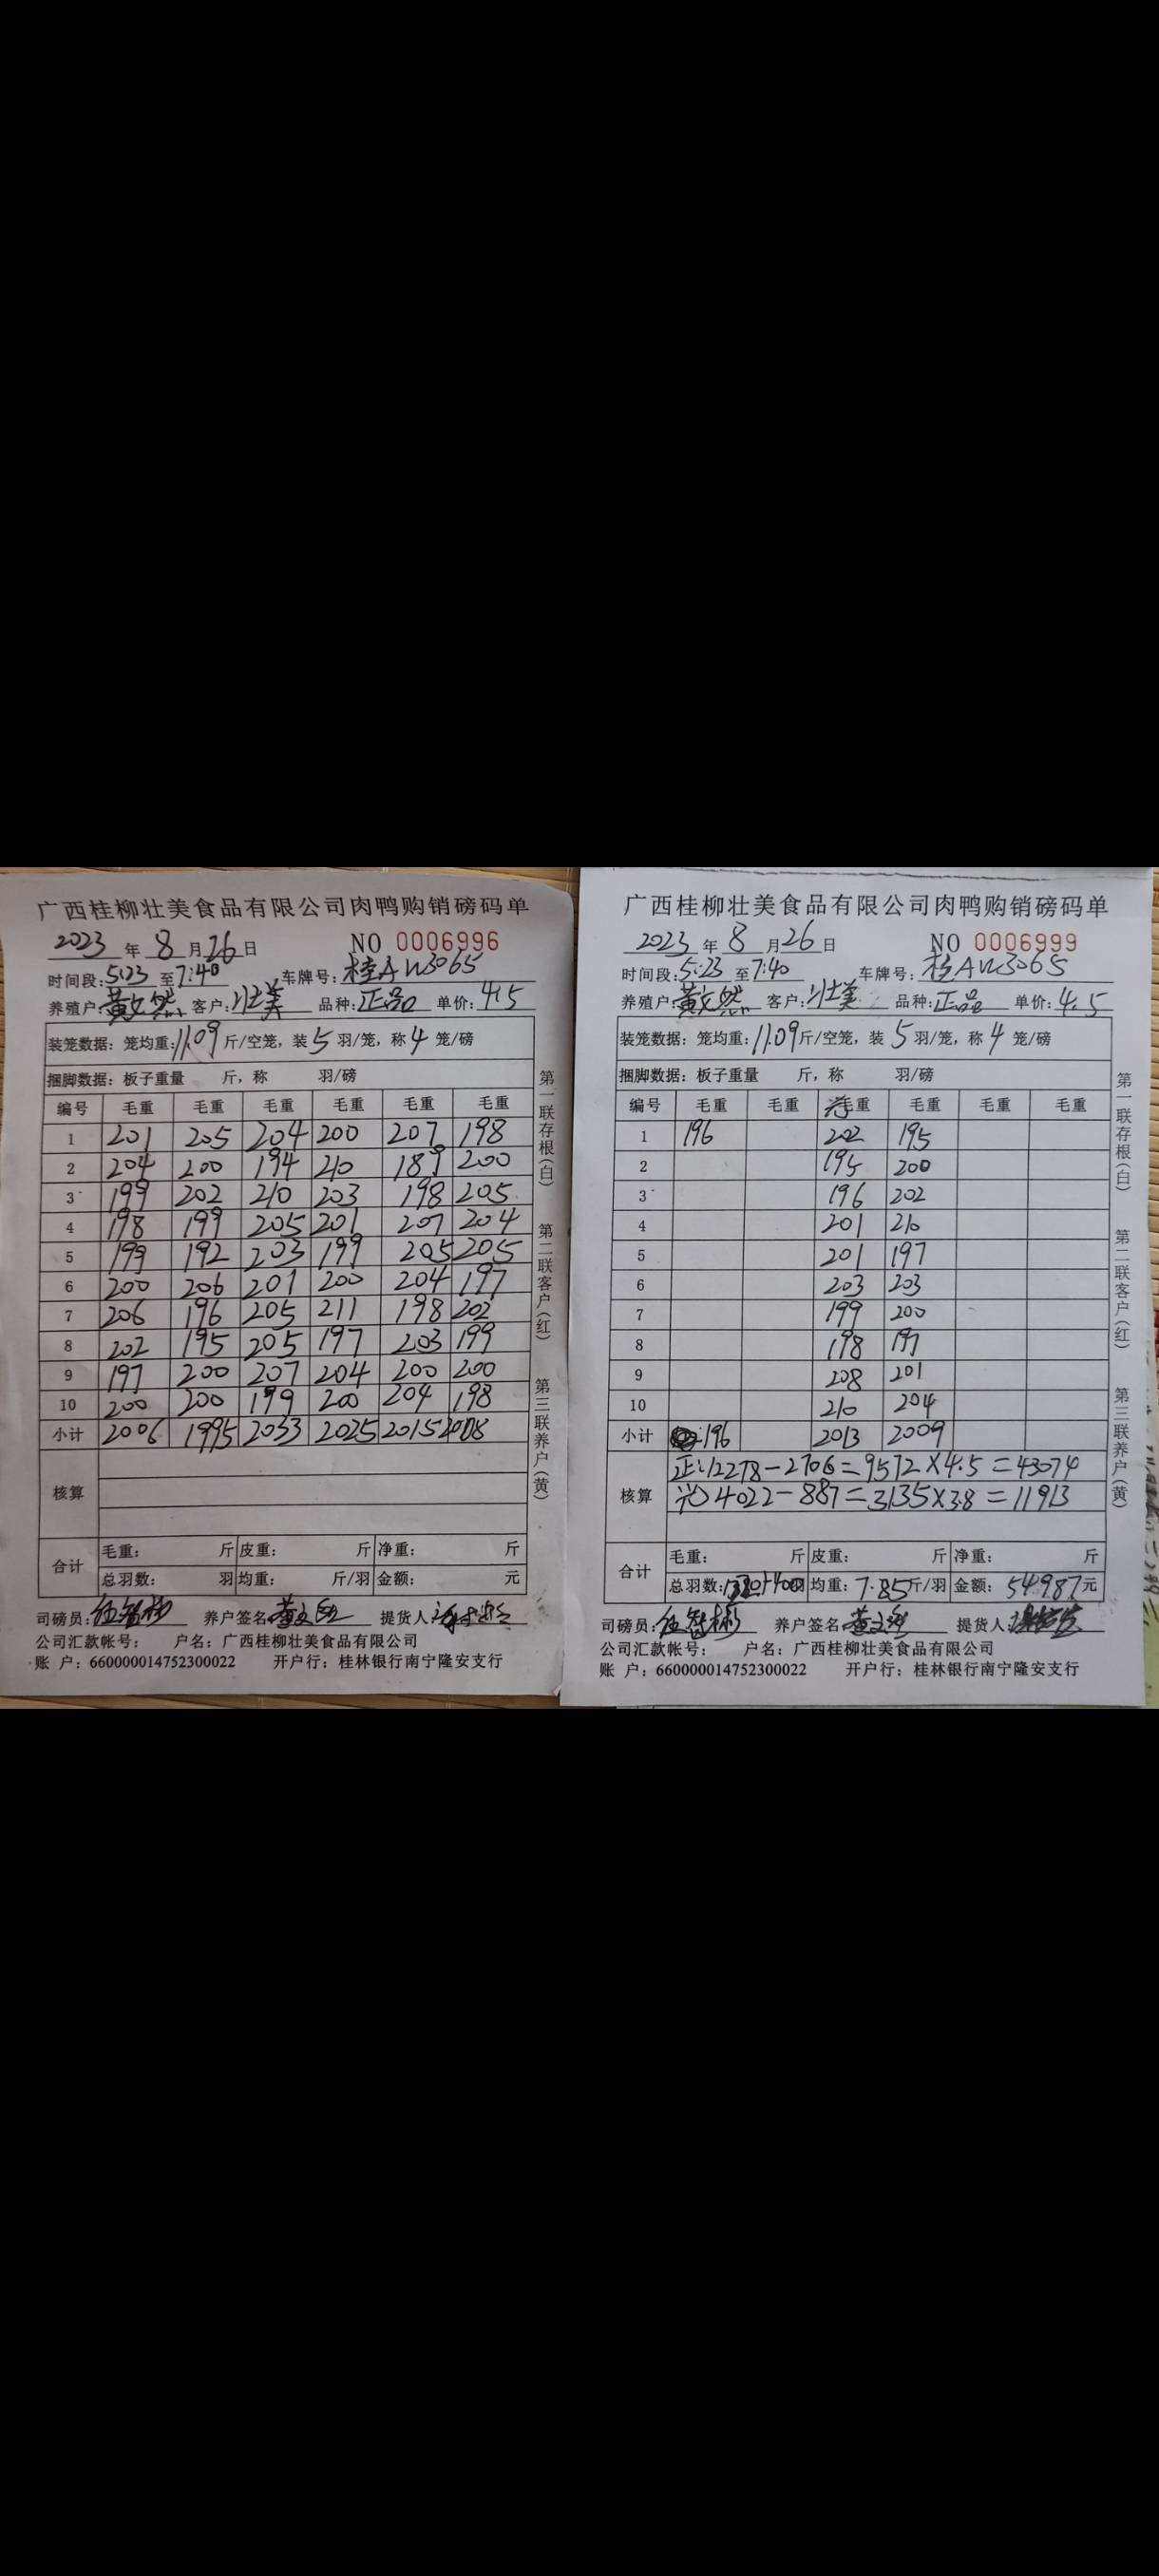 广西桂柳壮美食品有限公司肉鸭购销磅码单
2023 年 8 月 26 日 NO 0006996
时间段:5:23 至 7:40 车牌号:桂AW3065
养殖户: 客户:壮美 品种:正品 单价:4.5
装笼数据:笼均重:11.09 斤/空笼,装 5 羽/笼,称 4 笼/磅
捆脚数据:板子重量 斤,称 羽/磅
编号 毛重 毛重 毛重 毛重 毛重 毛重
1 201 205 204 200 207 198
2 204 200 194 210 189 200
3 199 202 210 203 198 205
4 198 199 205 201 207 204
5 199 192 203 199 205 205
6 200 206 201 200 204 197
7 206 196 205 211 198 202
8 202 195 205 197 203 199
9 197 200 207 204 200 200
10 200 200 199 200 204 198
小计 2006 1995 2033 2025 2015 2008
核算
合计 毛重: 斤 皮重: 斤 净重: 斤
总羽数: 羽 均重: 斤/羽 金额: 元
司磅员: 养户签名: 提货人:
公司汇款帐号: 户名:广西桂柳壮美食品有限公司
账 户:660000014752300022 开户行:桂林银行南宁隆安支行
第一联存根(白) 第二联客户(红) 第三联养户(黄)
广西桂柳壮美食品有限公司肉鸭购销磅码单
2023 年 8 月 26 日 NO 0006999
时间段:5:23 至 7:40 车牌号:桂AW3065
养殖户: 客户:壮美 品种:正品 单价:4.5
装笼数据:笼均重:11.09 斤/空笼,装 5 羽/笼,称 4 笼/磅
捆脚数据:板子重量 斤,称 羽/磅
编号 毛重 毛重 毛重 毛重 毛重 毛重
1 196 202 195
2 195 200
3 196 202
4 201 210
5 201 197
6 203 203
7 199 200
8 198 197
9 208 201
10 210 204
小计 196 2013 2009
核算 正:12278-2706=9572×4.5=43074
4022-887=3135×3.8=11913
合计 毛重: 斤 皮重: 斤 净重: 斤
总羽数: 羽 均重:7.85 斤/羽 金额:54987 元
司磅员: 养户签名: 提货人:
公司汇款帐号: 户名:广西桂柳壮美食品有限公司
账 户:660000014752300022 开户行:桂林银行南宁隆安支行
第一联存根(白) 第二联客户(红) 第三联养户(黄)